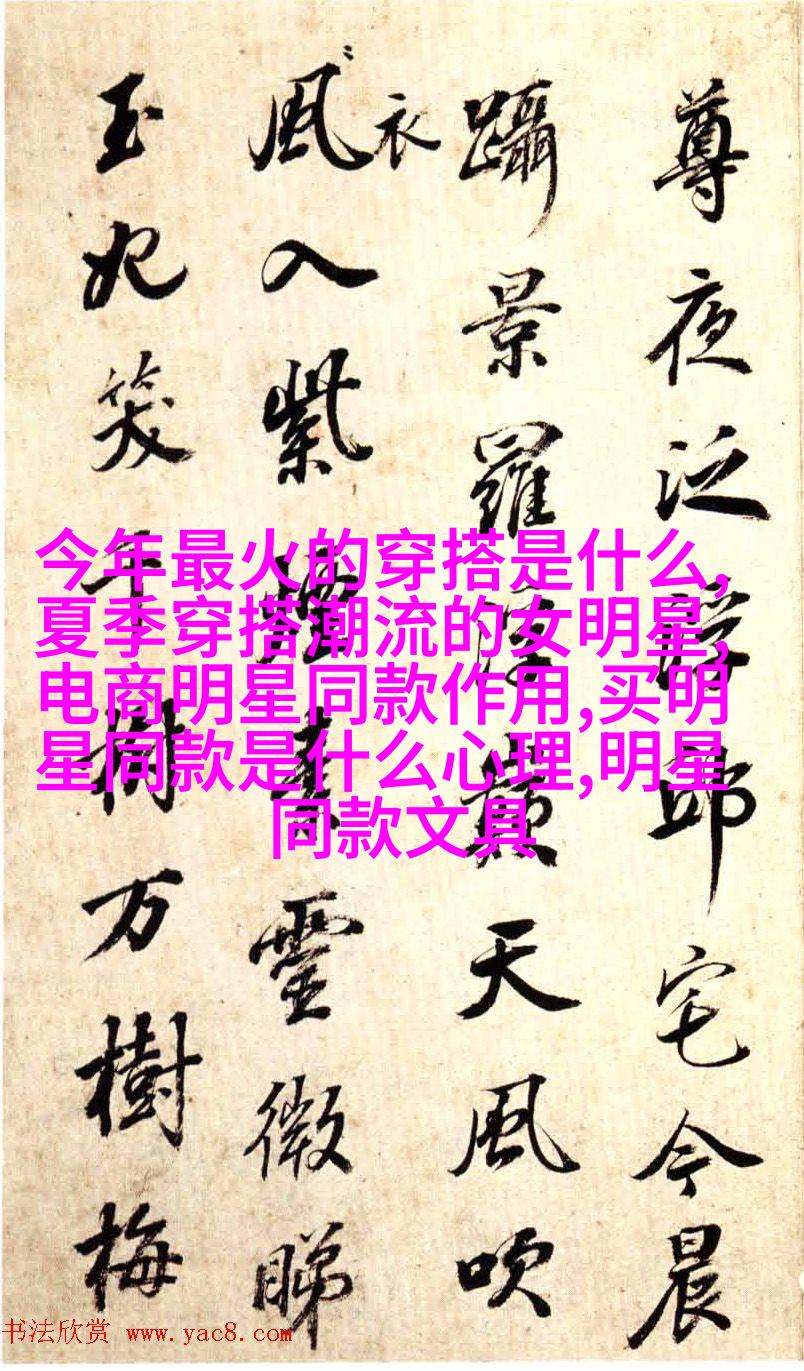 尊夜泛邱宅今晨
躡景羅浮天風吹
衣
風入紫霊微睇
玉妃笑千樹万樹梅
今年最火的穿搭是什么,
夏季穿搭潮流的女明星,
电商明星同款作用,买明
星同款是什么心理,明星
同款文具
书法欣赏 www.yac8.com